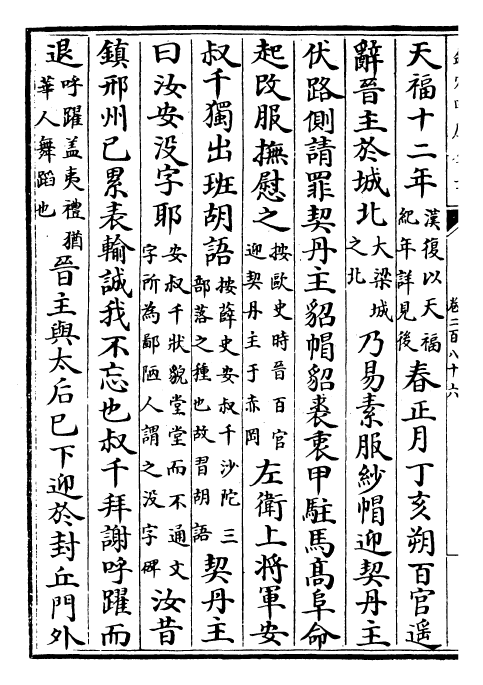 天福十二年漢復以天福紀年詳見後春正月丁亥朔百官遥
辭晉主於城北大梁城之北乃易素服紗帽迎契丹主
伏路側請罪契丹主貂帽貂裘衷甲駐馬髙阜命
起改服撫慰之按歐史時晉百官迎契丹主于赤岡左衛上將軍安
叔千獨出班胡語按薛史安叔千沙陀三部落之種也故習胡語契丹主
曰汝安没字耶安叔千狀貌堂堂而不通文字所為鄙陋人謂之没字碑汝昔
鎮邢州已累表輸誠我不忘也叔千拜謝呼躍而
退呼躍盖夷禮猶華人舞蹈也晉主與太后已下迎於封丘門外
卷二百八十六